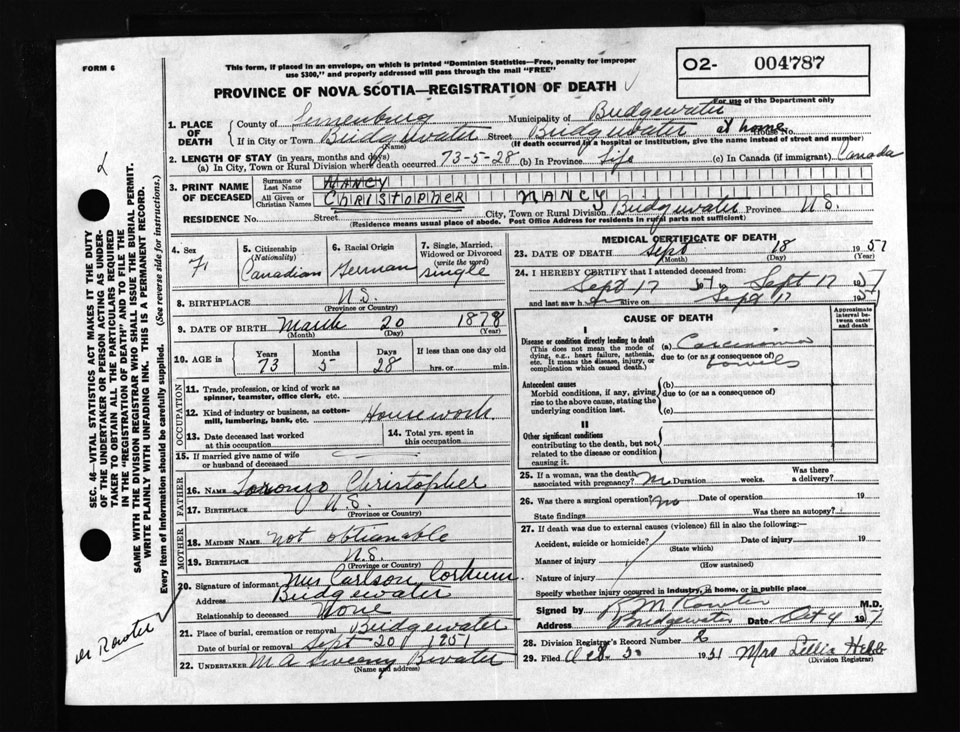 FORM 6
This form, if placed in an envelope, on which is printed "Dominion Statistics—Free, penalty for improper
use $300," and properly addressed will pass through the mail "FREE"
02- 004787
For use of the Department only
PROVINCE OF NOVA SCOTIA—REGISTRATION OF DEATH
1. PLACE OF DEATH
County of Lunenburg Municipality of Bridgewater
If in City or Town Bridgewater Street Bridgewater at home House No.
(Name) (If death occurred in a hospital or institution, give its name instead of street and number)
2. LENGTH OF STAY (in years, months and days)
(a) In City, Town or Rural Division where death occurred 73-5-28 (b) In Province Life (c) In Canada (if immigrant) Canada
3. PRINT NAME OF DECEASED
Surname or Last Name NANCY
All Given or Christian Names CHRISTOPHER NANCY
RESIDENCE No. Street City, Town or Rural Division Bridgewater Province N.S.
(Residence means usual place of abode. Post Office Address for residents in rural parts not sufficient)
4. Sex F.
5. Citizenship (Nationality) Canadian
6. Racial Origin German
7. Single, Married, Widowed or Divorced (write the word) single
8. BIRTHPLACE N.S.
(Province or Country)
9. DATE OF BIRTH March 20 1878
(Month) (Day) (Year)
10. AGE in Years Months Days If less than one day old
73 5 28 hrs. or min.
OCCUPATION
11. Trade, profession, or kind of work as spinner, teamster, office clerk, etc.
12. Kind of industry or business, as cotton-mill, lumbering, bank, etc. Housework
13. Date deceased last worked at this occupation
14. Total yrs. spent in this occupation
15. If married give name of wife or husband of deceased
FATHER
16. NAME Christopher
17. BIRTHPLACE N.S.
(Province or Country)
MOTHER
18. MAIDEN NAME not obtianable
19. BIRTHPLACE N.S.
(Province or Country)
20. Signature of informant Mrs Carlson Corkum
Address Bridgewater
Relationship to deceased None
21. Place of burial, cremation or removal Bridgewater
Date of burial or removal Sept 20 1951
22. UNDERTAKER M A Sweeny B.water
(Name and address)
MEDICAL CERTIFICATE OF DEATH
23. DATE OF DEATH Sept 18 1951
(Month) (Day) (Year)
24. I HEREBY CERTIFY that I attended deceased from:
Sept 17 to Sept 17 1951
and last saw h alive on Sept 17 1951
CAUSE OF DEATH
Approximate interval between onset and death
I
Disease or condition directly leading to death
(This does not mean the mode of dying, e.g., heart failure, asthenia, etc. It means the disease, injury, or complication which caused death.)
(a) Carcinoma
due to (or as a consequence of)
bowels
Antecedent causes
Morbid conditions, if any, giving rise to the above cause, stating the underlying condition last.
(b)
due to (or as a consequence of)
(c)
II
Other significant conditions
contributing to the death, but not related to the disease or condition causing it.
25. If a woman, was the death associated with pregnancy? Duration weeks. Was there a delivery?
26. Was there a surgical operation? no Date of operation 19
State findings Was there an autopsy?
27. If death was due to external causes (violence) fill in also the following:—
Accident, suicide or homicide? Date of injury 19
(State which)
Manner of injury
(How sustained)
Nature of injury
Specify whether injury occurred in industry, in home, or in public place
Signed by R M Rowter M.D.
Address Bridgewater Date Oct 4 1951
28. Division Registrar's Record Number
29. Filed 1951 Mrs Lellia Hebb
(Division Registrar)
SEC. 46—VITAL STATISTICS ACT MAKES IT THE DUTY
OF THE UNDERTAKER OR PERSON ACTING AS UNDER-
TAKER TO OBTAIN ALL THE PARTICULARS REQUIRED
IN THE "REGISTRATION OF DEATH" AND TO FILE THE
SAME WITH THE DIVISION REGISTRAR WHO SHALL ISSUE THE BURIAL PERMIT.
WRITE PLAINLY WITH UNFADING INK. THIS IS A PERMANENT RECORD.
Every item of information should be carefully supplied. (See reverse side for instructions.)
Dr Rowter